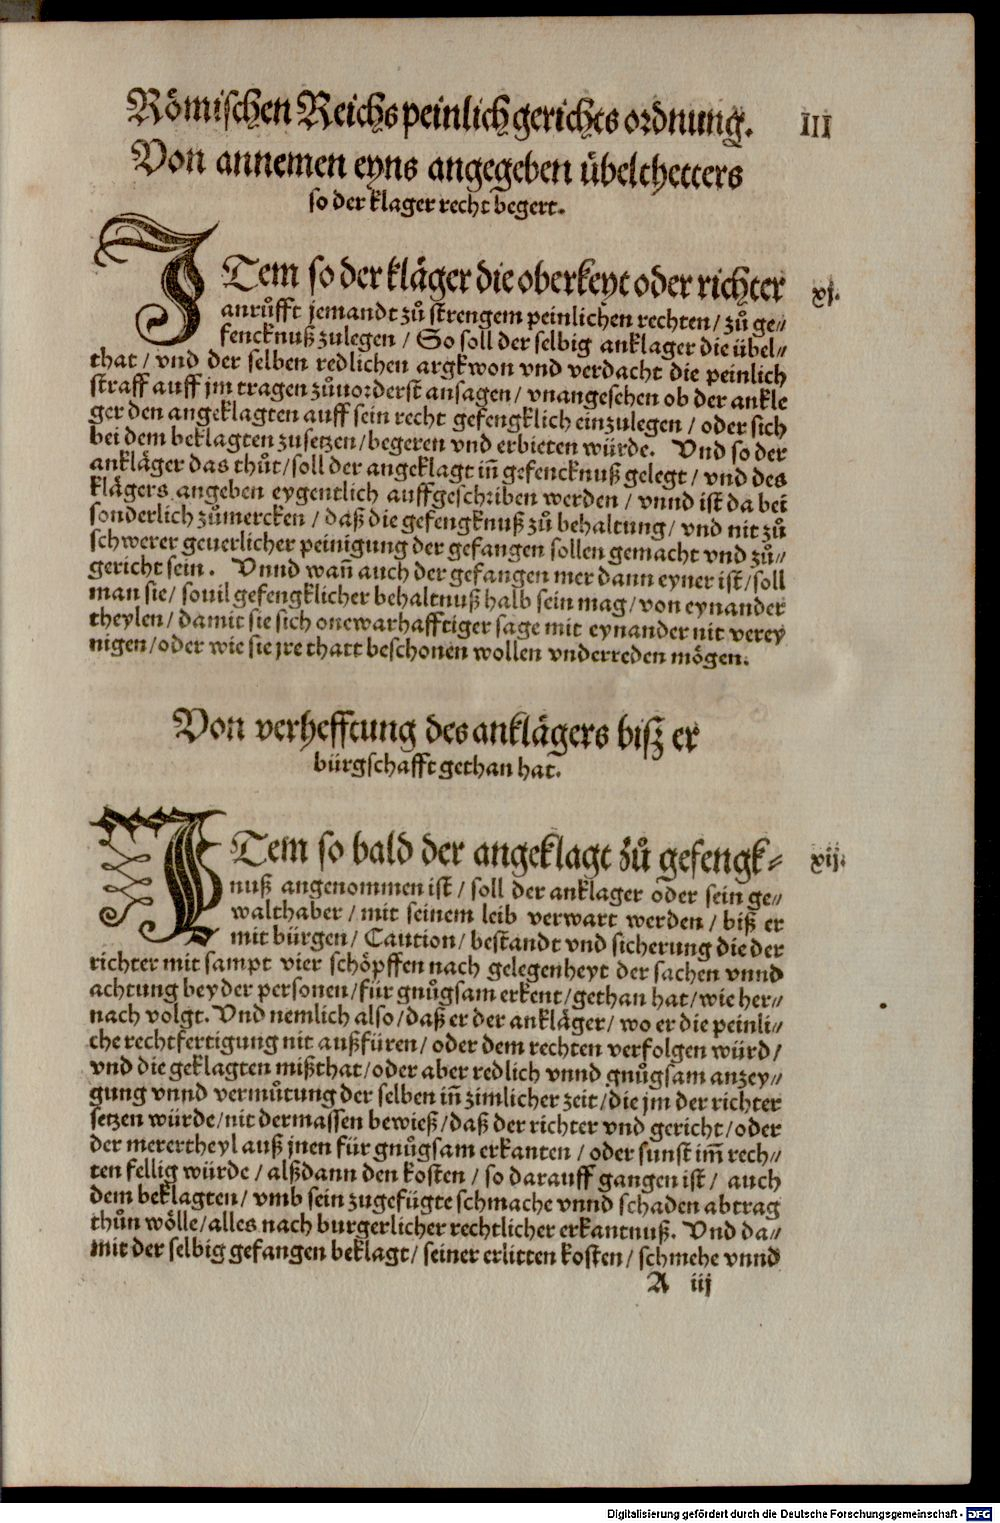 Römischen Reichs peinlich gerichts ordnung. III
Von annemen eyns angegeben übelthetters
so der klager recht begert.
ITem so der kläger die oberkeyt oder richter xj.
anrůfft jemandt zů strengem peinlichen rechten / zů ge⸗
fencknuß zulegen / So soll der selbig anklager die übel⸗
that / vnd der selben redlichen argkwon vnd verdacht die peinlich
straff auff jm tragen zůuorderst ansagen / vnangesehen ob der ankle
ger den angeklagten auff sein recht gefengklich einzulegen / oder sich
bei dem beklagten zusetzen / begeren vnd erbieten würde. Vnd so der
ankläger das thůt / soll der angeklagt iñ gefencknuß gelegt / vnd des
klägers angeben eygentlich auffgeschriben werden / vnnd ist da bei
sonderlich zůmercken / daß die gefengknuß zů behaltung / vnd nit zů
schwerer geuerlicher peinigung der gefangen sollen gemacht vnd zů⸗
gericht sein. Vnnd wañ auch der gefangen mer dann eyner ist / soll
man sie / souil gefengklicher behaltnuß halb sein mag / von eynander
theylen / damit sie sich onewarhafftiger sage mit eynander nit verey
nigen / oder wie sie jre thatt beschonen wollen vnderreden mögen.
Von verhefftung des anklägers biß er
bürgschafft gethan hat.
ITem so bald der angeklagt zů gefengk⸗ xij.
nuß angenommen ist / soll der anklager oder sein ge⸗
walthaber / mit seinem leib verwart werden / biß er
mit bürgen / Caution / bestandt vnd sicherung die der
richter mit sampt vier schöpffen nach gelegenheyt der sachen vnnd
achtung beyder personen / für gnůgsam erkent / gethan hat / wie her⸗
nach volgt. Vnd nemlich also / daß er der ankläger / wo er die peinli⸗
che rechtfertigung nit außfüren / oder dem rechten verfolgen würd /
vnd die geklagten mißthat / oder aber redlich vnnd gnůgsam anzey⸗
gung vnnd vermůtung der selben iñ zimlicher zeit / die jm der richter
setzen würde / nit dermassen bewieß / daß der richter vnd gericht / oder
der merertheyl auß jnen für gnůgsam erkanten / oder sunst im̃ rech⸗
ten fellig würde / alßdann den kosten / so darauff gangen ist / auch
dem beklagten / vmb sein zugefügte schmache vnnd schaden abtrag
thůn wölle / alles nach burgerlicher rechtlicher erkantnuß. Vnd da⸗
mit der selbig gefangen beklagt / seiner erlitten kosten / schmehe vnnd
A iij
Digitalisierung gefördert durch die Deutsche Forschungsgemeinschaft - DFG